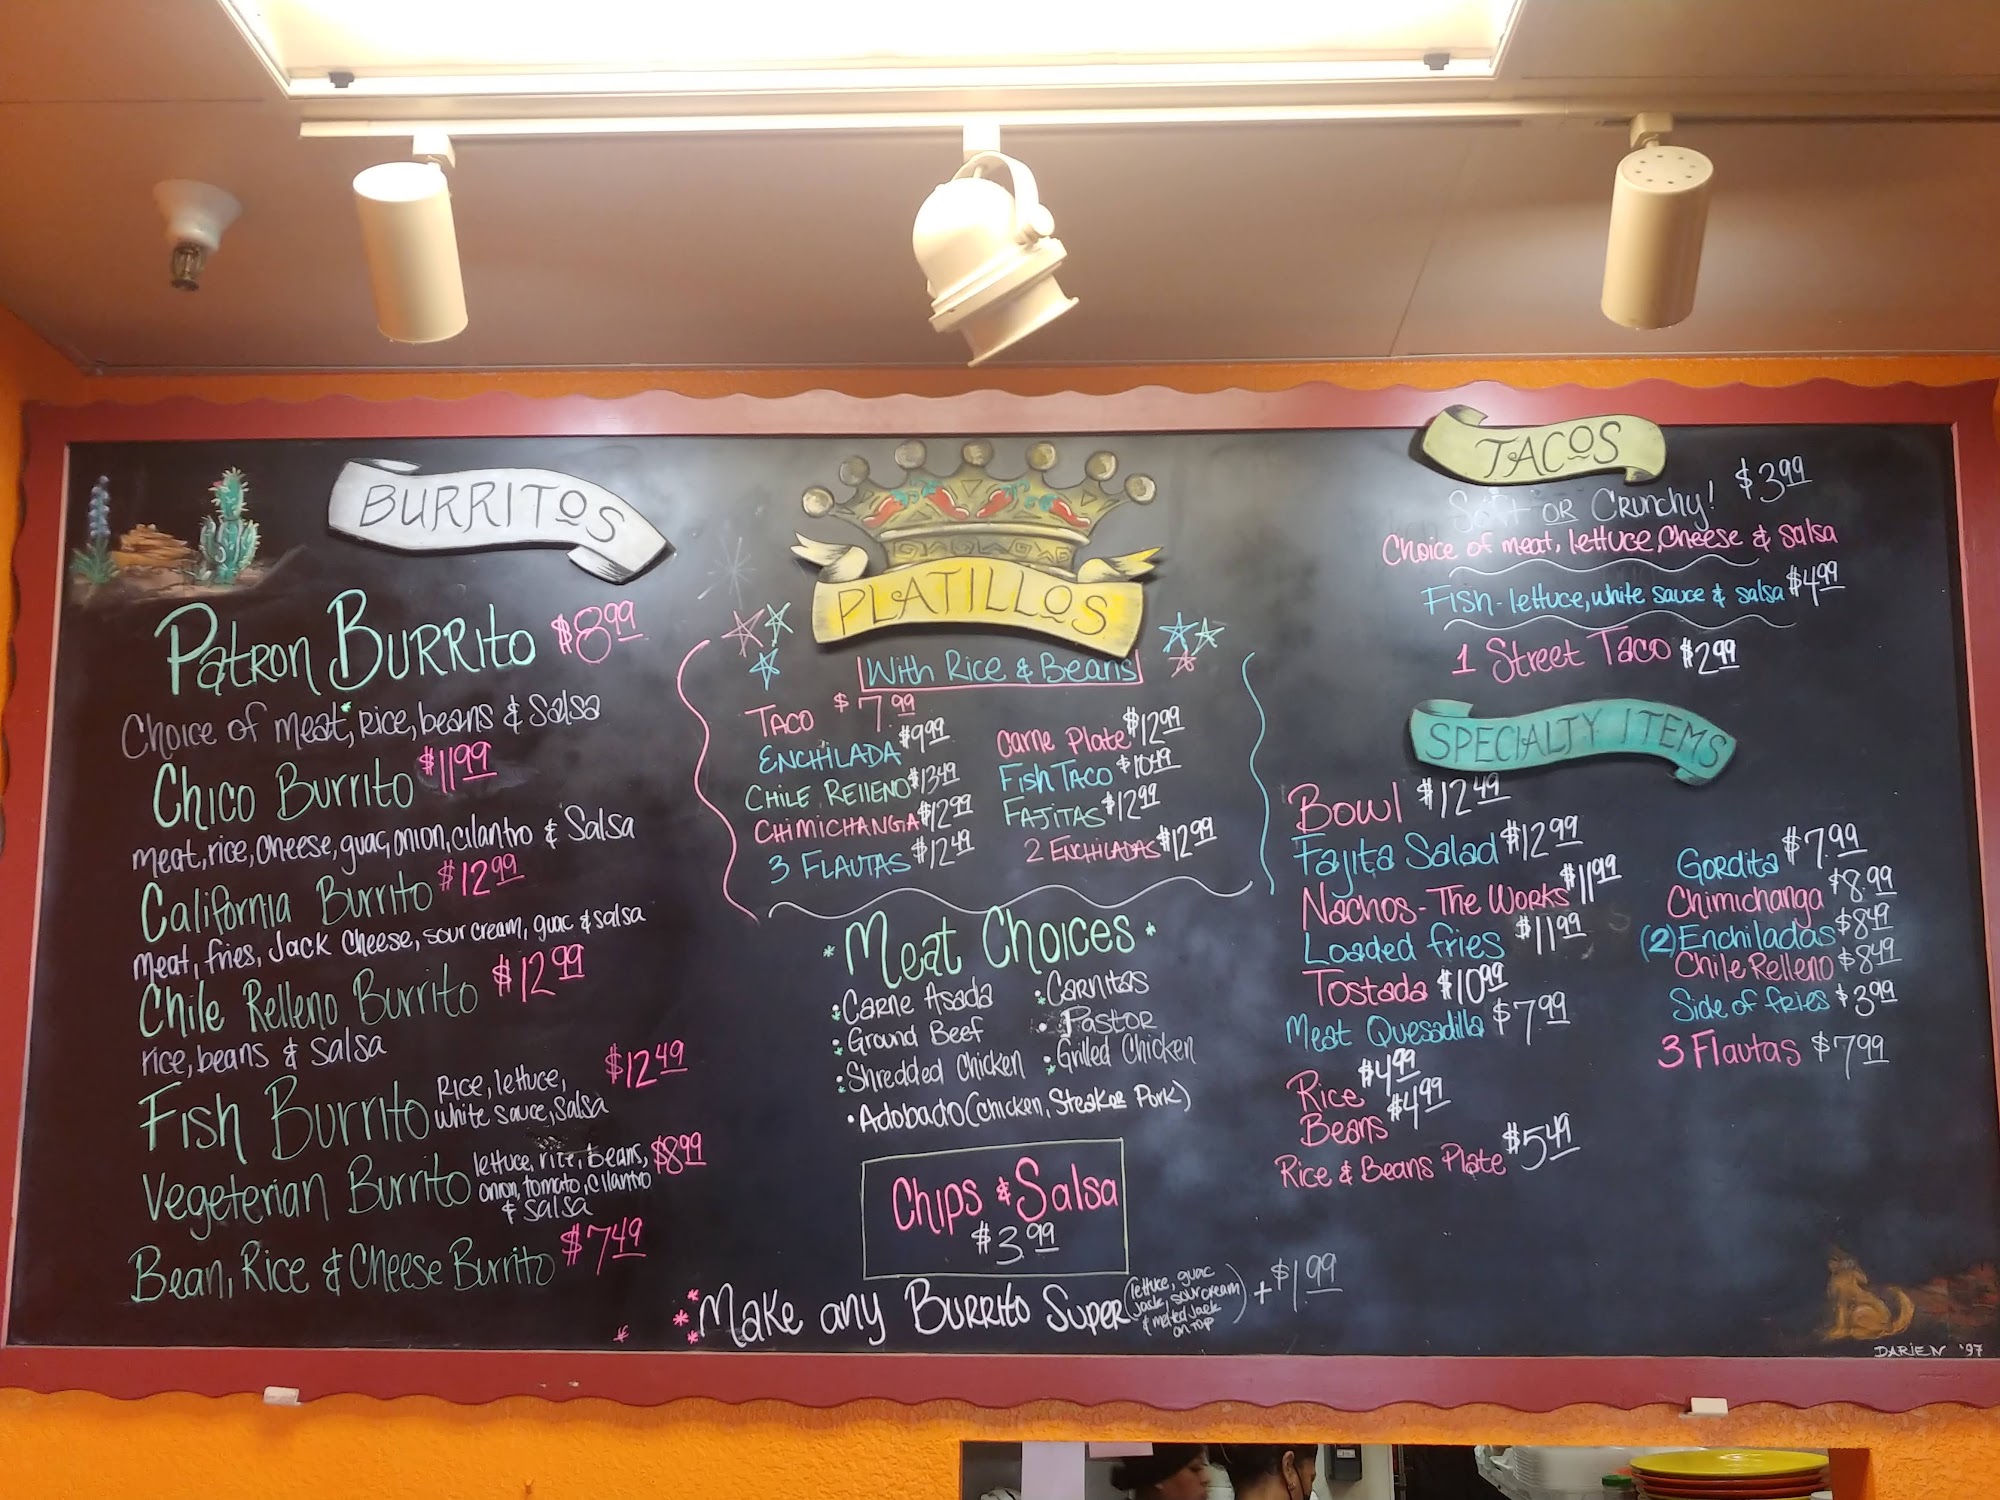 BURRITOS
Patron Burrito $8.99
Choice of meat, rice, beans & Salsa
Chico Burrito $11.99
meat, rice, cheese, guac, onion, cilantro & Salsa
California Burrito $12.99
meat, fries, Jack Cheese, sour cream, guac & salsa
Chile Relleno Burrito $12.99
rice, beans & Salsa
Fish Burrito Rice, lettuce, $12.49
white sauce, Salsa
Vegeterian Burrito lettuce, rice, beans, $8.99
onion, tomato, cilantro
& Salsa
Bean, Rice & Cheese Burrito $7.49
PLATILLOS
With Rice & Beans
Taco $7.99
Enchilada $9.99
Chile Relleno $13.49
Chimichanga $12.99
3 Flautas $12.49
Carne Plate $12.99
Fish Taco $10.49
Fajitas $12.99
2 Enchiladas $12.99
*Meat Choices*
• Carne Asada
• Ground Beef
• Shredded Chicken
• Carnitas
• Pastor
• Grilled Chicken
• Adobado (chicken, Steak or Pork)
Chips & Salsa
$3.99
*** Make any Burrito Super (lettuce, guac + $1.99
Jack, sour cream
& melted Jack
on top)
TACOS
Soft or Crunchy! $3.99
Choice of meat, lettuce, Cheese & Salsa
Fish - lettuce, white sauce & salsa $4.99
1 Street Taco $2.99
SPECIALTY ITEMS
Bowl $12.49
Fajita Salad $12.99
Nachos - The Works $11.99
Loaded fries $11.99
Tostada $10.99
Meat Quesadilla $7.99
Rice $4.99
Beans $4.99
Rice & Beans Plate $5.49
Gordita $7.99
Chimichanga $8.99
(2) Enchiladas $8.49
Chile Relleno $8.49
Side of fries $3.99
3 Flautas $7.99
DARIEN '97